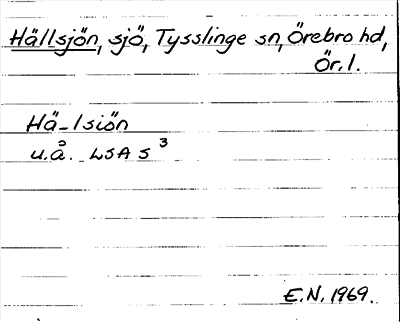 Hällsjön, sjö, Tysslinge sn, Örebro hd,
Ör. l.
Hä-lsiön
u.å. LSA S³
E.N. 1969.